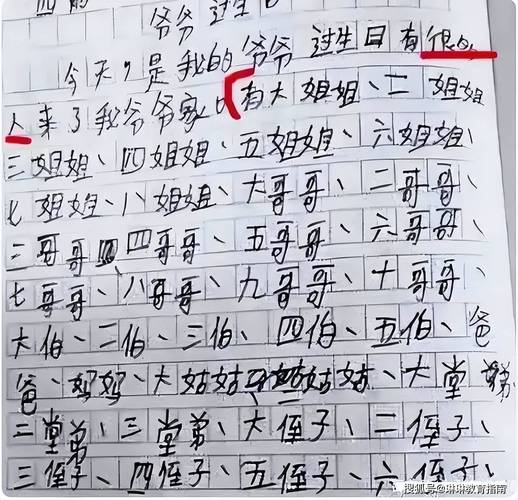 四
爷爷过生日
今天,是我的爷爷过生日有很多
人来了我爷爷家,有大姐姐、二姐姐
三姐姐、四姐姐、五姐姐、六姐姐、
七姐姐、八姐姐、大哥哥、二哥哥、
三哥哥、四哥哥、五哥哥、六哥哥、
七哥哥、八哥哥、九哥哥、十哥哥、
大伯、二伯、三伯、四伯、五伯、爸
爸、妈妈、大姑姑、姑姑、大堂弟
二堂弟、三堂弟、大侄子、二侄子、
三侄子、四侄子、五侄子、六侄子、
搜狐号@琳琳教育指南